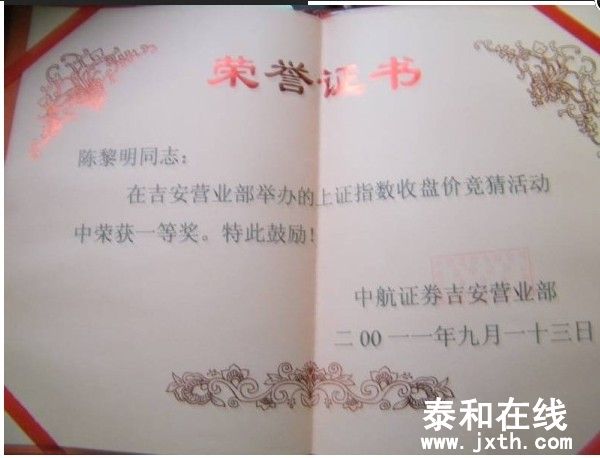 荣誉证书
陈黎明同志：
在吉安营业部举办的上证指数收盘价竞猜活动
中荣获一等奖。特此鼓励！
中航证券吉安营业部
二00一一年九月一十三日
泰和在线
www.jxth.com